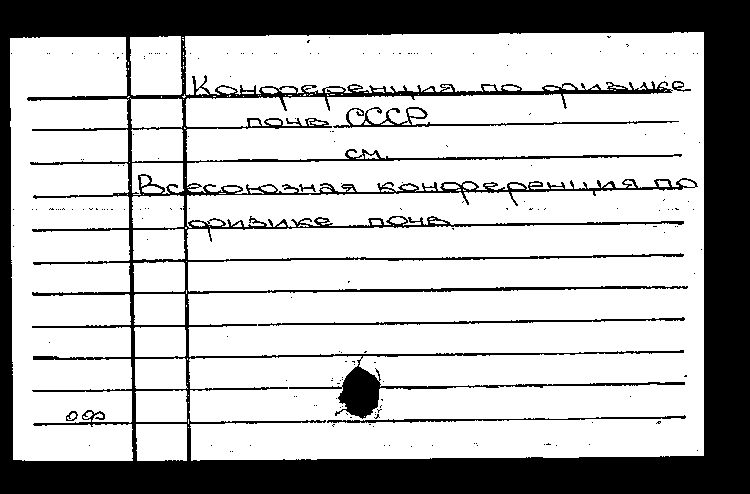 Конференция по физике
почв СССР
см.
Всесоюзная конференция по
физике почв